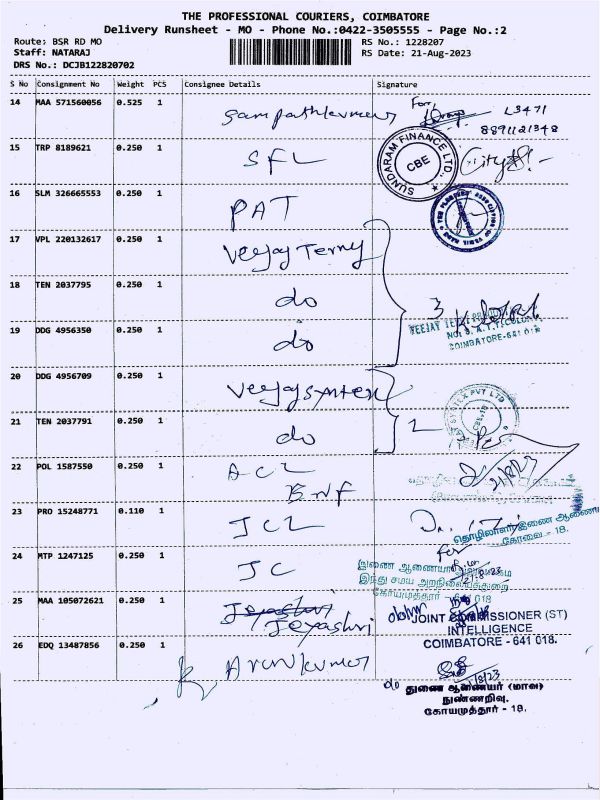 THE PROFESSIONAL COURIERS, COIMBATORE
Delivery Runsheet - MO - Phone No.:0422-3505555 - Page No.:2
Route: BSR RD MO
RS No.: 1228207
Staff: NATARAJ
RS Date: 21-Aug-2023
DRS No.: DCJB122820702
S No Consignment No Weight PCS Consignee Details Signature
14 MAA 571560056 0.525 1 Sampathkumar For L3471
8891121348
15 TRP 8189621 0.250 1 SFL
SUNDARAM FINANCE LTD.
CBE
16 SLM 326665553 0.250 1 PAT
17 VPL 220132617 0.250 1 Veejay Terry
18 TEN 2037795 0.250 1 do 3
19 DDG 4956350 0.250 1 do
VEEJAY
COIMBATORE-641 018
20 DDG 4956709 0.250 1 Veejay Syntex
21 TEN 2037791 0.250 1 do 2
SYNTEX PVT LTD
22 POL 1587550 0.250 1 ACL
BNF
23 PRO 15248771 0.110 1 JCL
தொழிலாளர் இணை ஆணை
கோவை - 18.
24 MTP 1247125 0.250 1 JC for
இணை ஆணையர்
இந்து சமய அறநிலையத்துறை
கோயமுத்தூர் - 641 018
25 MAA 105072621 0.250 1 Jeyashri
Jeyashri
JOINT COMMISSIONER (ST)
INTELLIGENCE
COIMBATORE - 641 018.
26 EDQ 13487856 0.250 1 Arunkumar
துணை ஆணையர் (மாவ)
நுண்ணறிவு.
கோயமுத்தூர் - 18.